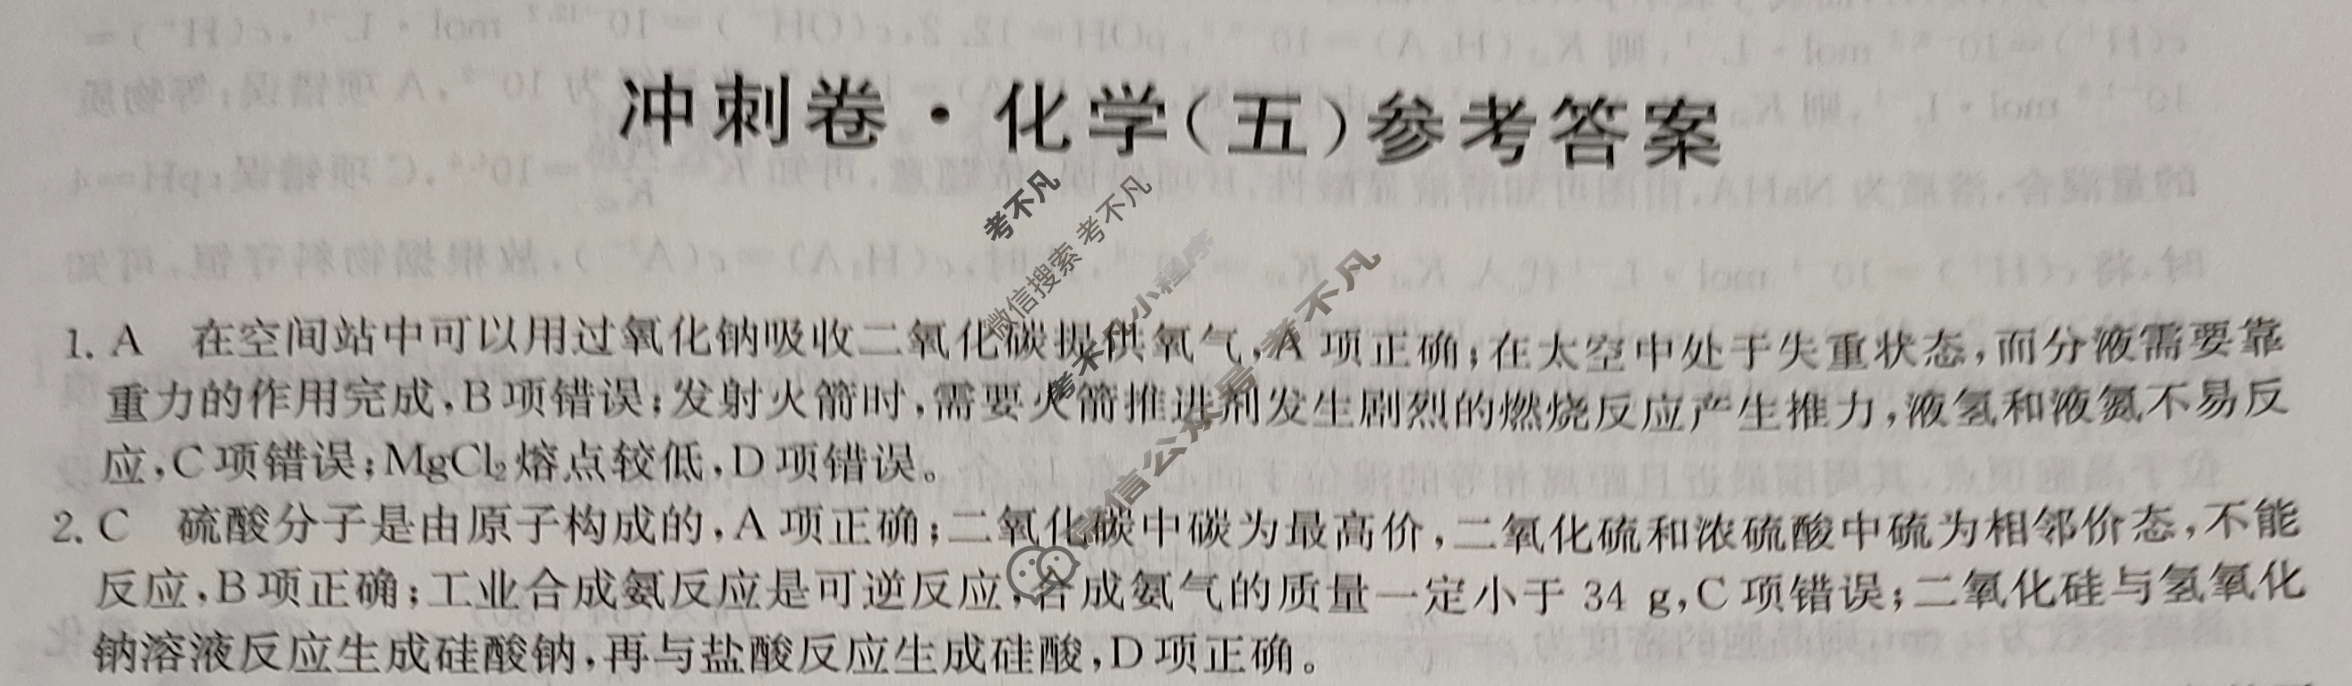 冲刺卷·化学(五)参考答案
1. A 在空间站中可以用过氧化钠吸收二氧化碳提供氧气,A项正确;在太空中处于失重状态,而分液需要靠
重力的作用完成,B项错误;发射火箭时,需要火箭推进剂发生剧烈的燃烧反应产生推力,液氢和液氮不易反
应,C项错误;MgCl₂熔点较低,D项错误。
2. C 硫酸分子是由原子构成的,A项正确;二氧化碳中碳为最高价,二氧化硫和浓硫酸中硫为相邻价态,不能
反应,B项正确;工业合成氨反应是可逆反应,合成氨气的质量一定小于 34 g,C项错误;二氧化硅与氢氧化
钠溶液反应生成硅酸钠,再与盐酸反应生成硅酸,D项正确。
考不凡
微信搜索 考不凡
考不凡 小程序
微信公众号 考不凡